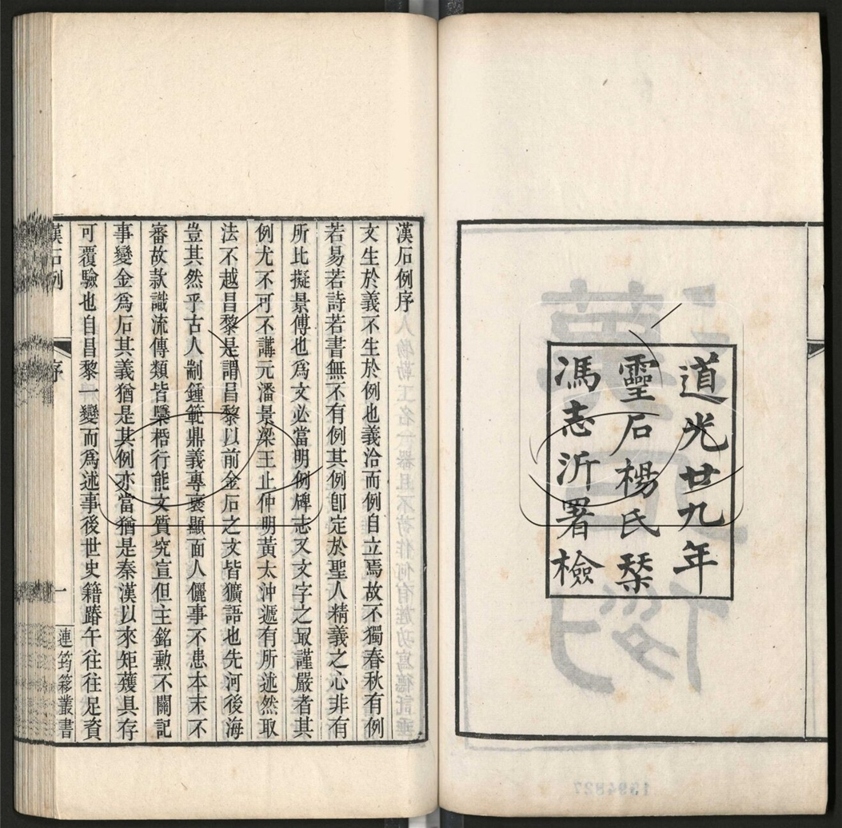 道光廿九年
靈石楊氏栞
馮志沂署檢
漢石例序
文生於義不生於例也義洽而例自立焉故不獨春秋有例
若易若詩若書無不有例其例卽定於聖人精義之心非有
所比擬景傅也爲文必當明例碑志又文字之最謹嚴者其
例尤不可不講元潘景梁王止仲明黃太沖遞有所述然取
法不越昌黎是謂昌黎以前金石之文皆獷語也先河後海
豈其然乎古人剬鍾範鼎義專褒顯面人儷事不患本末不
審故款識流傳類皆檃桰行能文質究宣但主銘勳不關記
事變金爲石其義猶是其例亦當猶是秦漢以來矩矱具存
可覆驗也自昌黎一變而爲述事後世史籍踳午往往足資
漢石例
序
一
連筠簃叢書
1394827